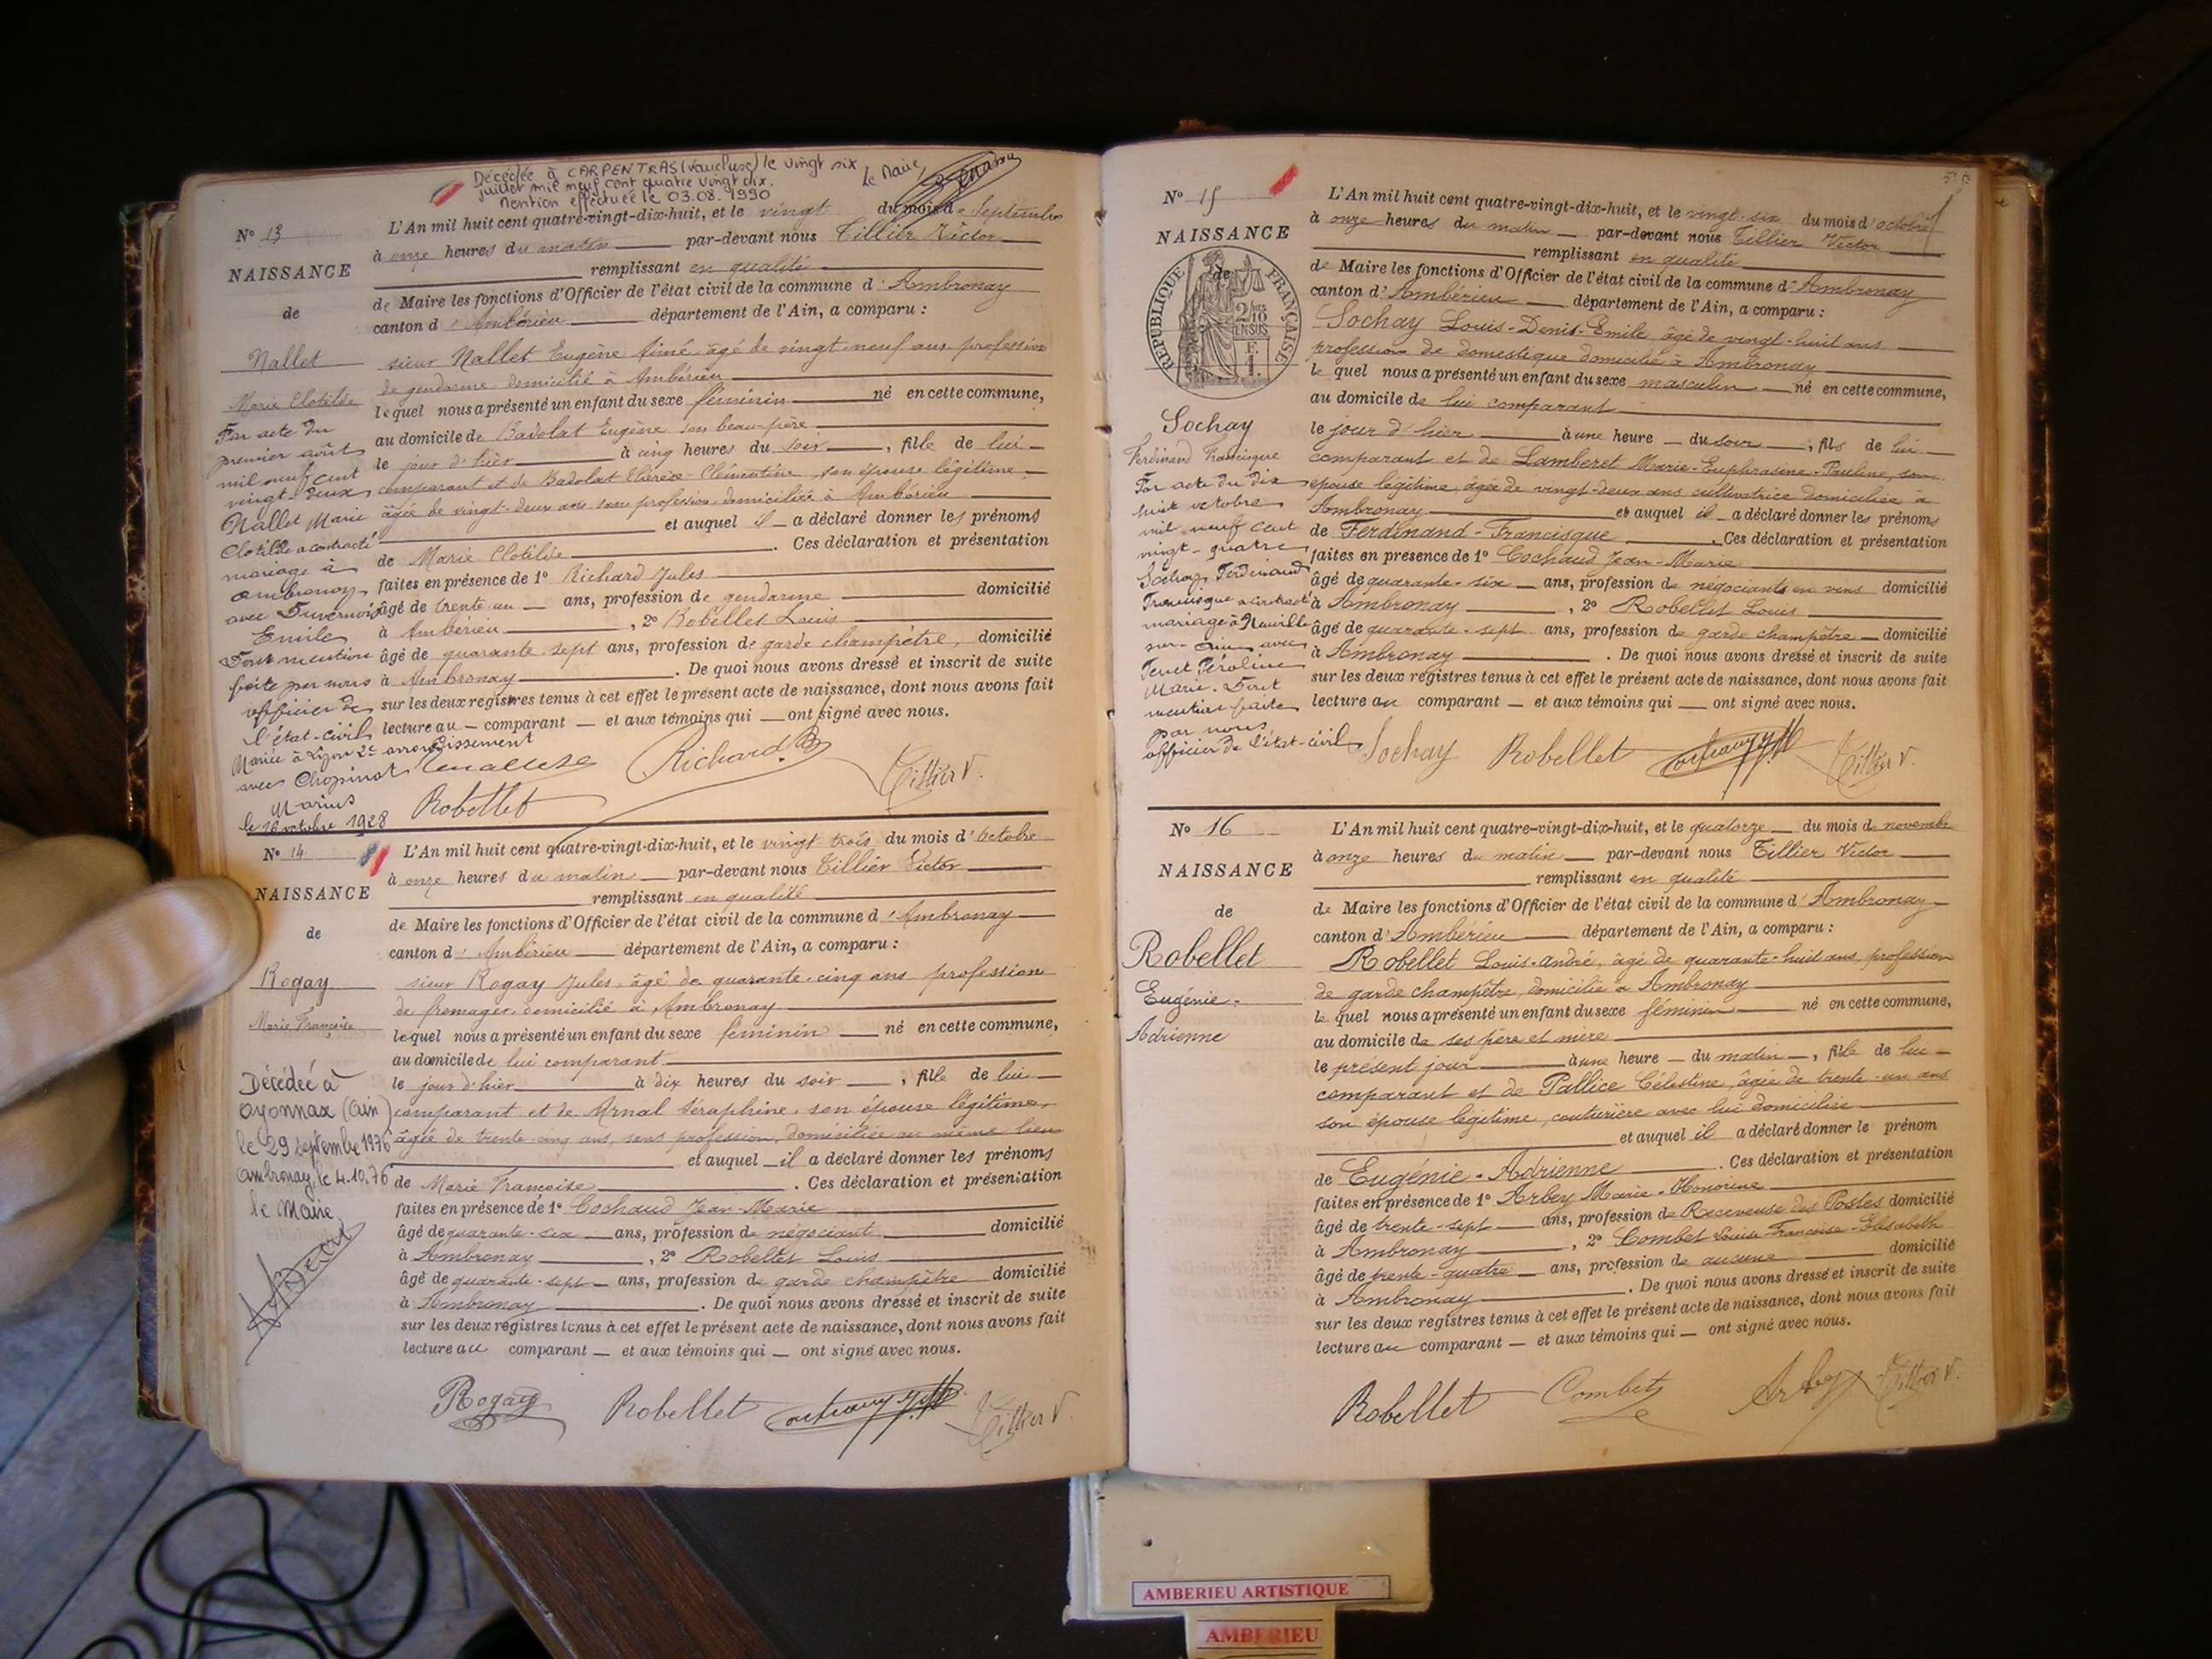 Décédée à CARPENTRAS (Vaucluse) le vingt six
juillet mil neuf cent quatre vingt dix.
Mention effectuée le 03.08.1990
le Maire,
N° 13
NAISSANCE
de
Nallet
Marie Clotilde
Par acte du
premier août
mil neuf cent
vingt-deux
Nallet Marie
Clotilde a contracté
mariage à
Ambronay
avec Duvernois
Emile
Dont mention
faite par nous
officier de
l'état-civil
Mariée à Lyon 2e arrondissement
avec Chopinot
Marius
le 16 octobre 1928
L'An mil huit cent quatre-vingt-dix-huit, et le vingt du mois de Septembre
à onze heures du matin par-devant nous Tillier Victor
remplissant en qualité
de Maire les fonctions d'Officier de l'état civil de la commune d'Ambronay
canton d'Ambérieu département de l'Ain, a comparu :
sieur Nallet Eugène Aimé, âgé de vingt-neuf ans profession
de gendarme domicilié à Ambérieu
lequel nous a présenté un enfant du sexe féminin né en cette commune,
au domicile de Badolat Eugène son beau-père
le jour d'hier à cinq heures du soir, fille de lui
comparant et de Badolat Thérèse-Clémentine, son épouse légitime
âgée de vingt-deux ans sans profession domiciliée à Ambérieu
et auquel il a déclaré donner les prénoms
de Marie Clotilde. Ces déclaration et présentation
faites en présence de 1° Richard Jules
âgé de trente-un ans, profession de gendarme domicilié
à Ambérieu, 2° Robellet Louis
âgé de quarante-sept ans, profession de garde champêtre, domicilié
à Ambronay. De quoi nous avons dressé et inscrit de suite
sur les deux registres tenus à cet effet le présent acte de naissance, dont nous avons fait
lecture au comparant et aux témoins qui ont signé avec nous.
Richard
Tillier V.
Robellet
N° 14
NAISSANCE
de
Rogay
Marie Françoise
Décédée à
Oyonnax (Ain)
le 29 septembre 1976
Ambronay, le 4.10.76
le Maire
L'An mil huit cent quatre-vingt-dix-huit, et le vingt trois du mois d'Octobre
à onze heures du matin par-devant nous Tillier Victor
remplissant en qualité
de Maire les fonctions d'Officier de l'état civil de la commune d'Ambronay
canton d'Ambérieu département de l'Ain, a comparu :
sieur Rogay Jules, âgé de quarante-cinq ans profession
de fromager, domicilié à Ambronay
lequel nous a présenté un enfant du sexe féminin né en cette commune,
au domicile de lui comparant
le jour d'hier à dix heures du soir, fille de lui
comparant et de Arnal Séraphine, son épouse légitime,
âgée de trente-cinq ans, sans profession, domiciliée au même lieu
et auquel il a déclaré donner les prénoms
de Marie Françoise. Ces déclaration et présentation
faites en présence de 1° Cochaud Jean-Marie
âgé de quarante-six ans, profession de négociant domicilié
à Ambronay, 2° Robellet Louis
âgé de quarante-sept ans, profession de garde champêtre domicilié
à Ambronay. De quoi nous avons dressé et inscrit de suite
sur les deux registres tenus à cet effet le présent acte de naissance, dont nous avons fait
lecture au comparant et aux témoins qui ont signé avec nous.
Rogay Robellet Tillier V.
N° 15
NAISSANCE
de
RÉPUBLIQUE FRANÇAISE
2/10
EN SUS
F.
1.
Sochay
Ferdinand Francisque
Par acte du dix
huit octobre
mil neuf cent
vingt-quatre
Sochay Ferdinand
Francisque a contracté
mariage à Neuville
sur-Ain avec
Tenet Péroline
Marie. Dont
mention faite
par nous
officier de l'état-civil
L'An mil huit cent quatre-vingt-dix-huit, et le vingt-six du mois d'octobre
à onze heures du matin par-devant nous Tillier Victor
remplissant en qualité
de Maire les fonctions d'Officier de l'état civil de la commune d'Ambronay
canton d'Ambérieu département de l'Ain, a comparu :
Sochay Louis-Denis-Emile, âgé de vingt-huit ans
profession de domestique domicilié à Ambronay
le quel nous a présenté un enfant du sexe masculin né en cette commune,
au domicile de lui comparant
le jour d'hier à une heure du soir, fils de lui
comparant et de Lamberet Marie-Euphrasine-Pauline, son
épouse légitime, âgée de vingt-deux ans cultivatrice domiciliée à
Ambronay et auquel il a déclaré donner les prénoms
de Ferdinand-Francisque. Ces déclaration et présentation
faites en présence de 1° Cochaud Jean-Marie
âgé de quarante-six ans, profession de négociant en vins domicilié
à Ambronay, 2° Robellet Louis
âgé de quarante-sept ans, profession de garde champêtre domicilié
à Ambronay. De quoi nous avons dressé et inscrit de suite
sur les deux registres tenus à cet effet le présent acte de naissance, dont nous avons fait
lecture au comparant et aux témoins qui ont signé avec nous.
Sochay Robellet Tillier V.
N° 16
NAISSANCE
de
Robellet
Eugénie-
Adrienne
L'An mil huit cent quatre-vingt-dix-huit, et le quatorze du mois de novembre
à onze heures du matin par-devant nous Tillier Victor
remplissant en qualité
de Maire les fonctions d'Officier de l'état civil de la commune d'Ambronay
canton d'Ambérieu département de l'Ain, a comparu :
Robellet Louis-André, âgé de quarante-huit ans, profession
de garde champêtre, domicilié à Ambronay
le quel nous a présenté un enfant du sexe féminin né en cette commune,
au domicile de ses père et mère
le présent jour à une heure du matin, fille de lui
comparant et de Pallice Célestine, âgée de trente-un ans
son épouse légitime, couturière avec lui domiciliée
et auquel il a déclaré donner le prénom
de Eugénie-Adrienne. Ces déclaration et présentation
faites en présence de 1° Arbey Marie-Honorine
âgé de trente-sept ans, profession de Receveuse des Postes domicilié
à Ambronay, 2° Combet Louise-Françoise-Elisabeth
âgé de trente-quatre ans, profession de aucune domicilié
à Ambronay. De quoi nous avons dressé et inscrit de suite
sur les deux registres tenus à cet effet le présent acte de naissance, dont nous avons fait
lecture au comparant et aux témoins qui ont signé avec nous.
Robellet Combet Arbey Tillier V.
AMBERIEU ARTISTIQUE
AMBERIEU